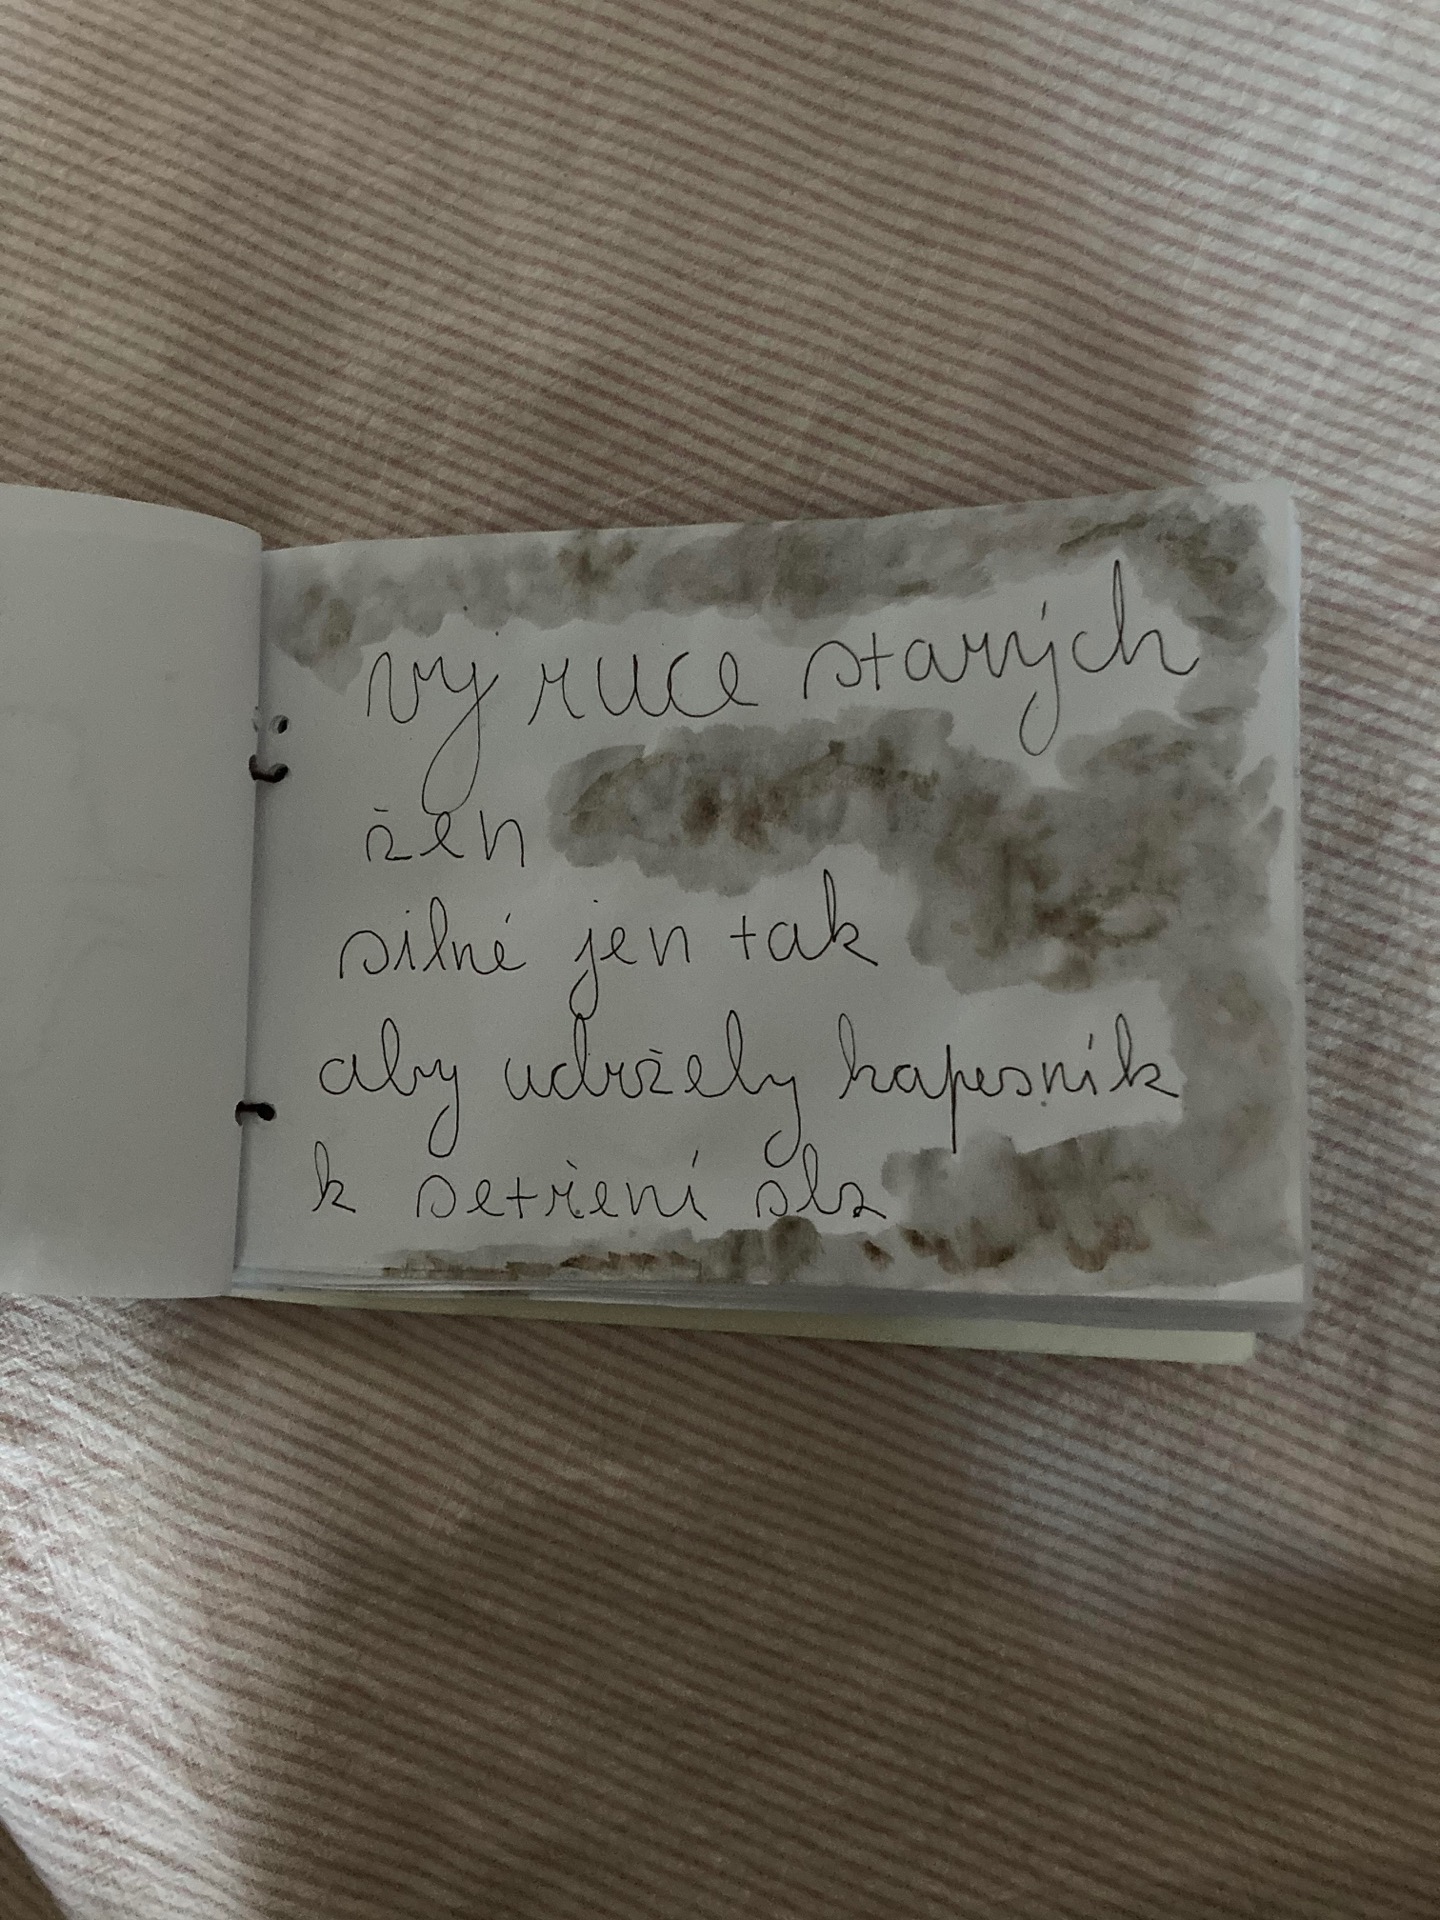 vy ruce starých
žen
silné jen tak
aby udržely kapesník
k setření slz